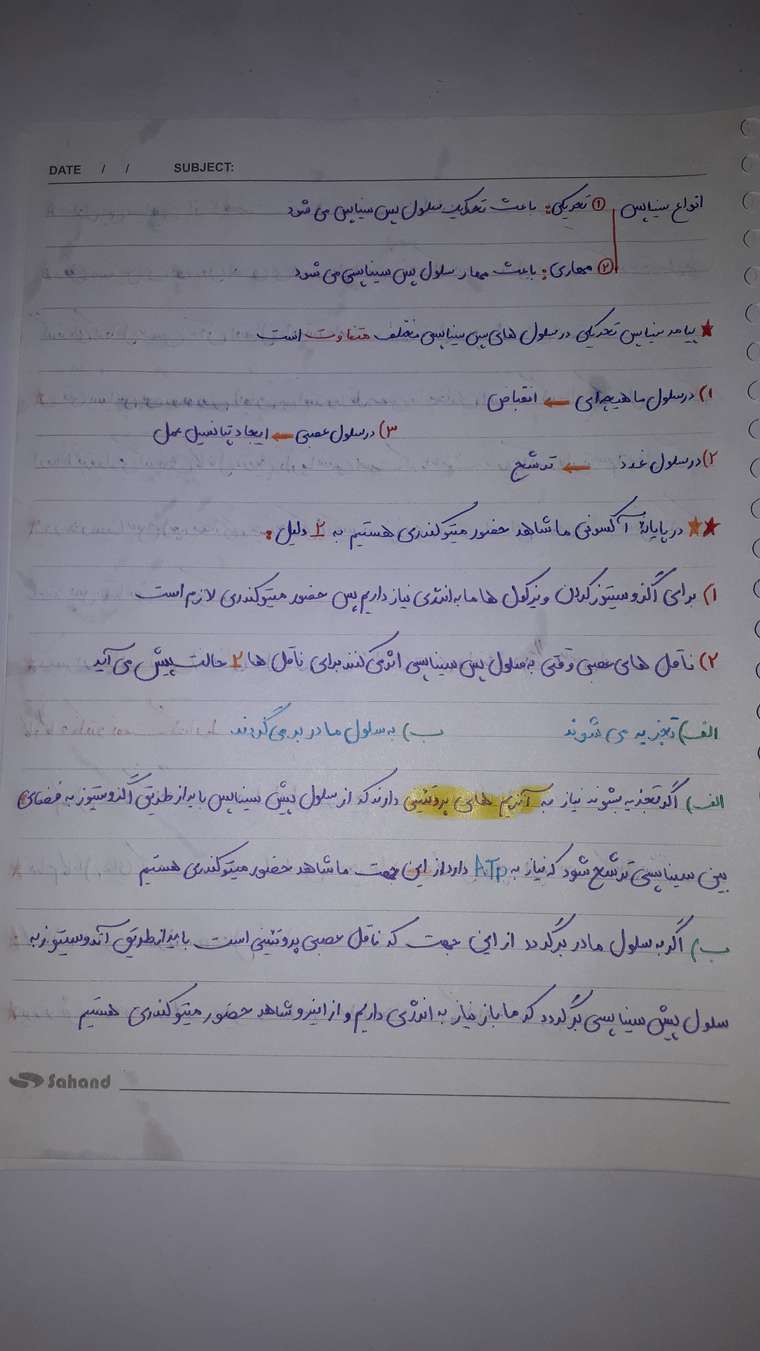 DATE / / SUBJECT:
انواع سیناپس ① تحریکی: باعث تحریک سلول پس سیناپس می شود
② مهاری: باعث مهار سلول پس سیناپسی می شود
★ پیامد سیناپس تحریکی در سلول های پس سیناپسی مختلف متفاوت است
۱) در سلول ماهیچه‌ای ← انقباض
۳) در سلول عصبی ← ایجاد پتانسیل عمل
۲) در سلول غدد ← ترشح
★★ در پایانهٔ آکسونی ما شاهد حضور میتوکندری هستیم به ۲ دلیل:
۱) برای اگزوسیتوز کردن وزیکول ها ما به انرژی نیاز داریم پس حضور میتوکندری لازم است
۲) ناقل های عصبی وقتی به سلول پس سیناپسی اثر می کنند برای ناقل ها ۲ حالت پیش می آید
الف) تجزیه می شوند ب) به سلول مادر بر می گردند
الف) اگر تجزیه بشوند نیاز به آنزیم های پروتئینی دارند که از سلول پیش سیناپس باید از طریق اگزوسیتوز به فضای
بین سیناپسی ترشح شود که نیاز به ATP دارد از این جهت ما شاهد حضور میتوکندری هستیم
ب) اگر به سلول مادر برگردد از این جهت که ناقل عصبی پروتئینی است باید از طریق آندوسیتوز به
سلول پیش سیناپسی برگردد که ما باز نیاز به انرژی داریم و از اینرو شاهد حضور میتوکندری هستیم
Sahand